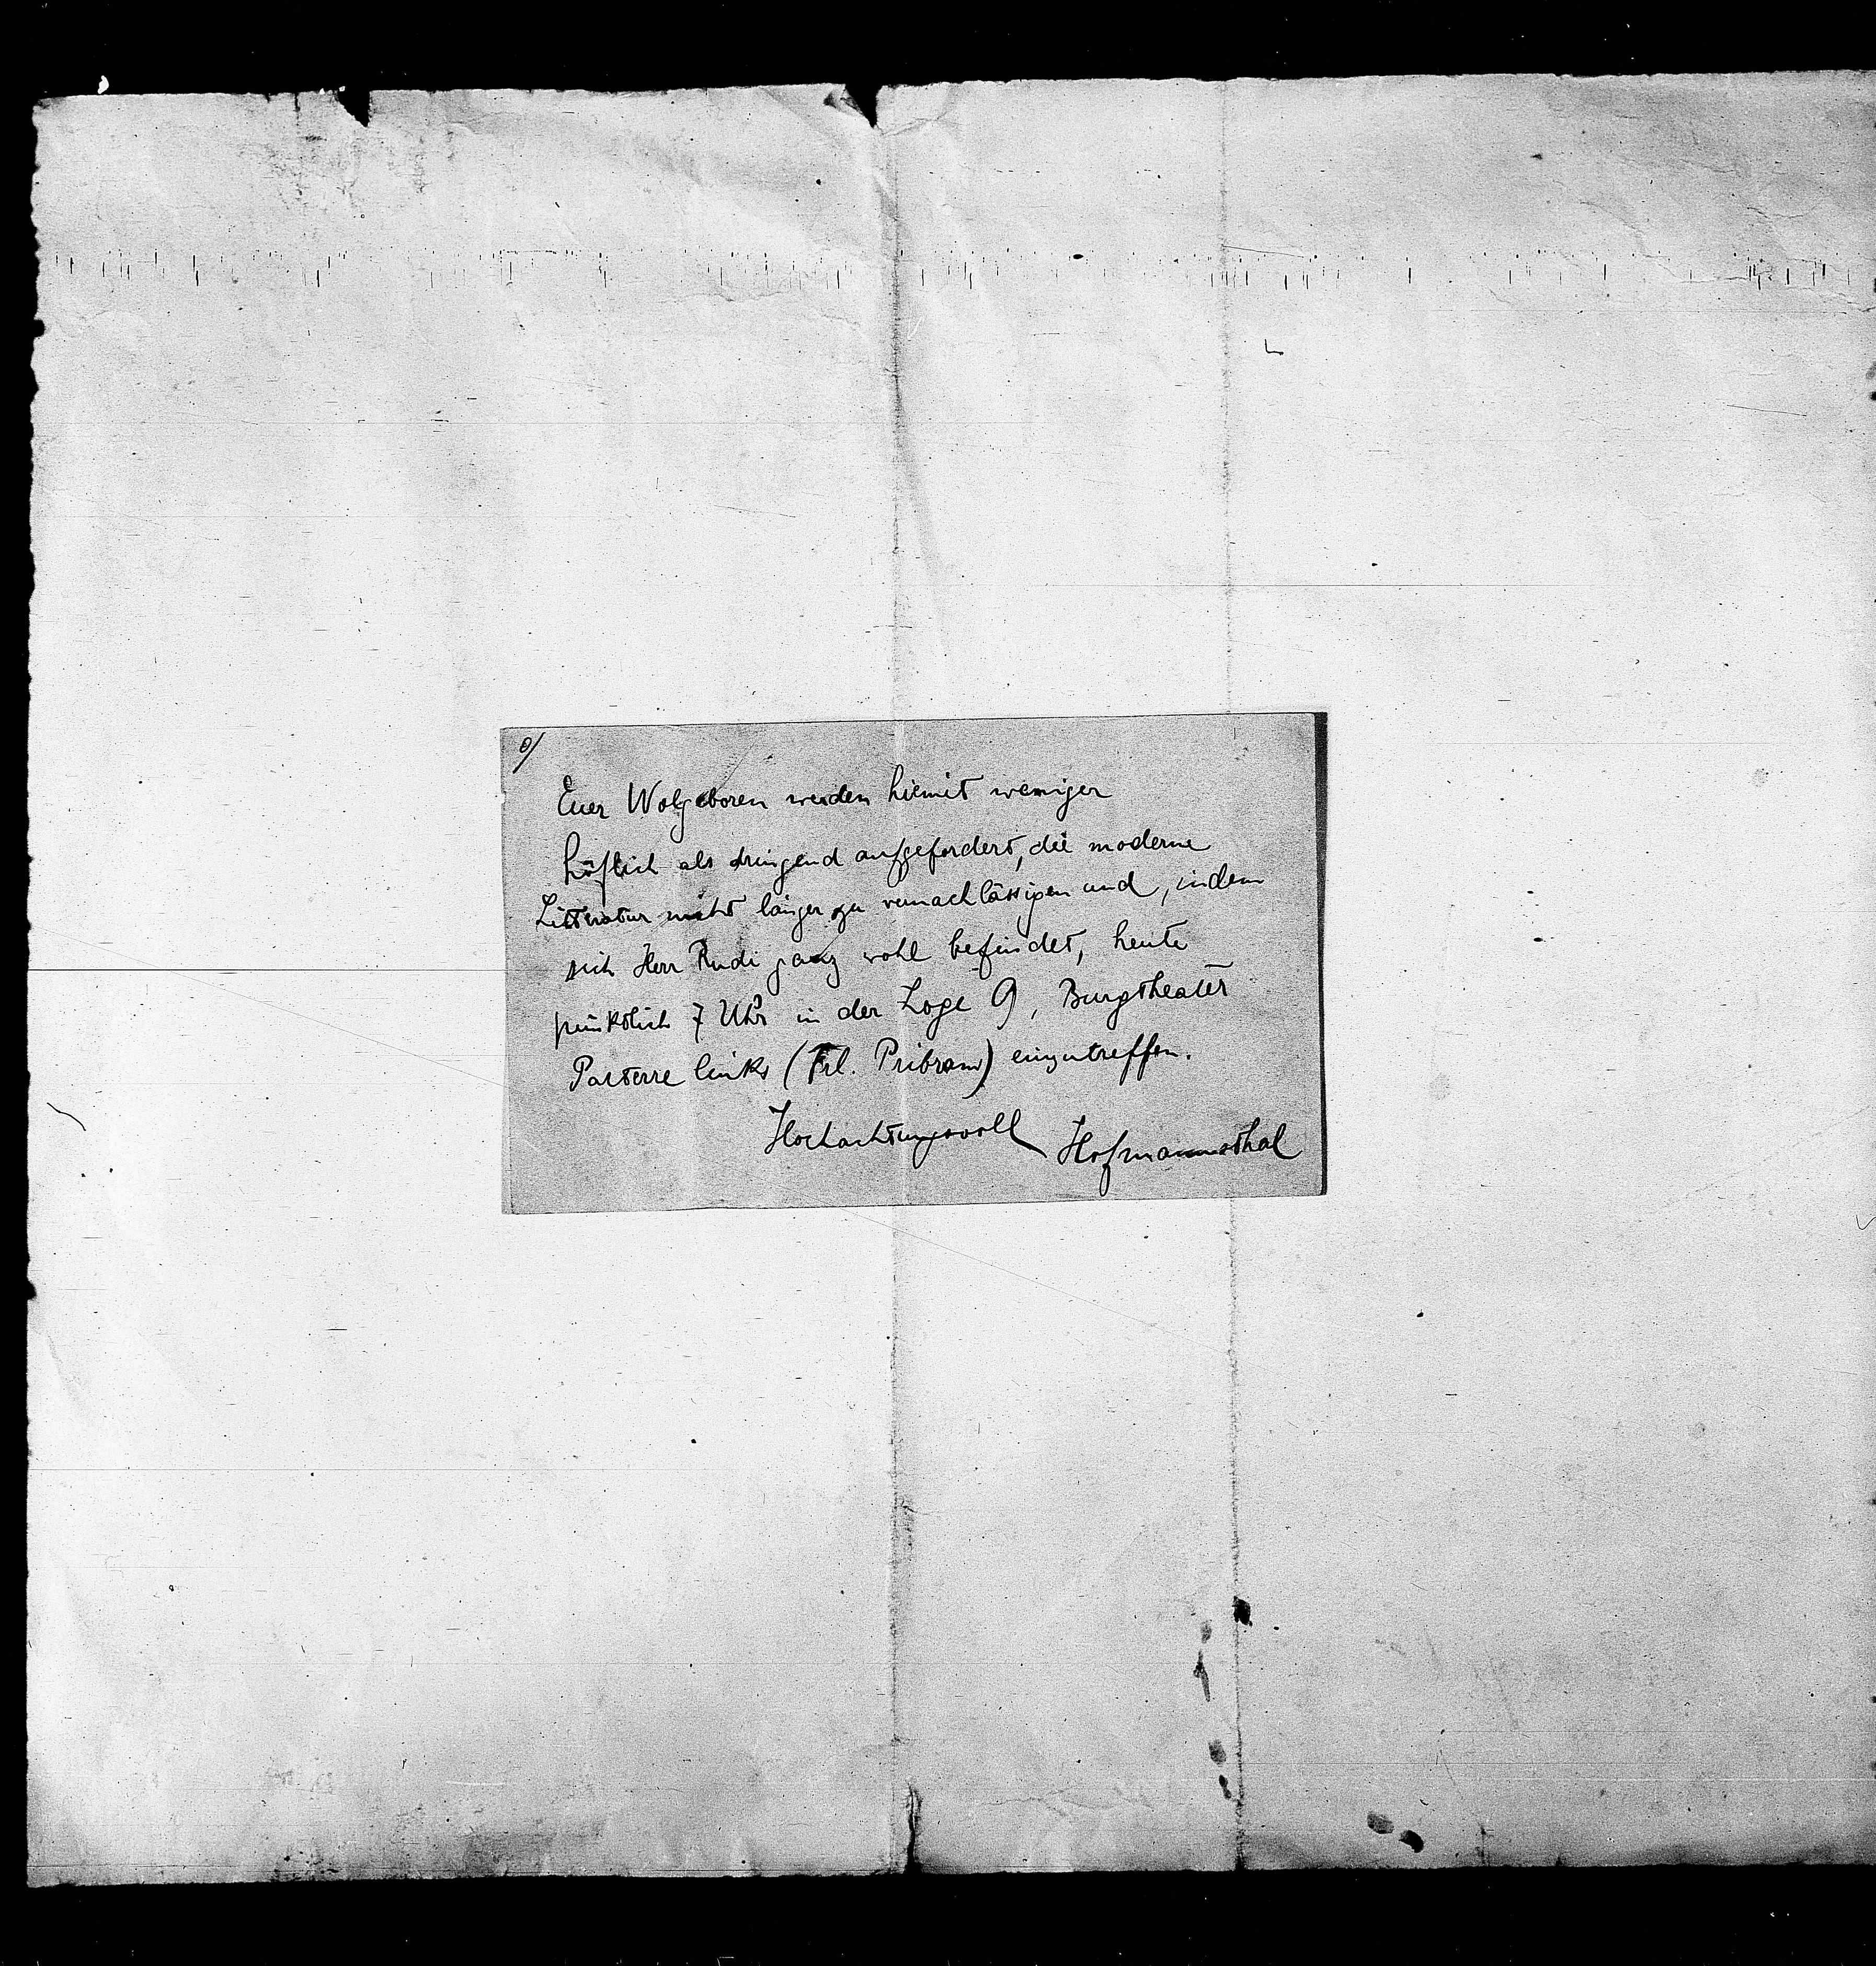 Euer Wolgeboren werden hiemit weniger
höflich als dringend aufgefordert, die moderne
Litteratur nicht länger zu vernachlässigen und, indem
sich Herr Rudi ganz wohl befindet, heute
pünktlich 7 Uhr in der Loge 9, Burgtheater
Parterre links (Frl. Pribram) einzutreffen.
Hochachtungsvoll Hofmannsthal